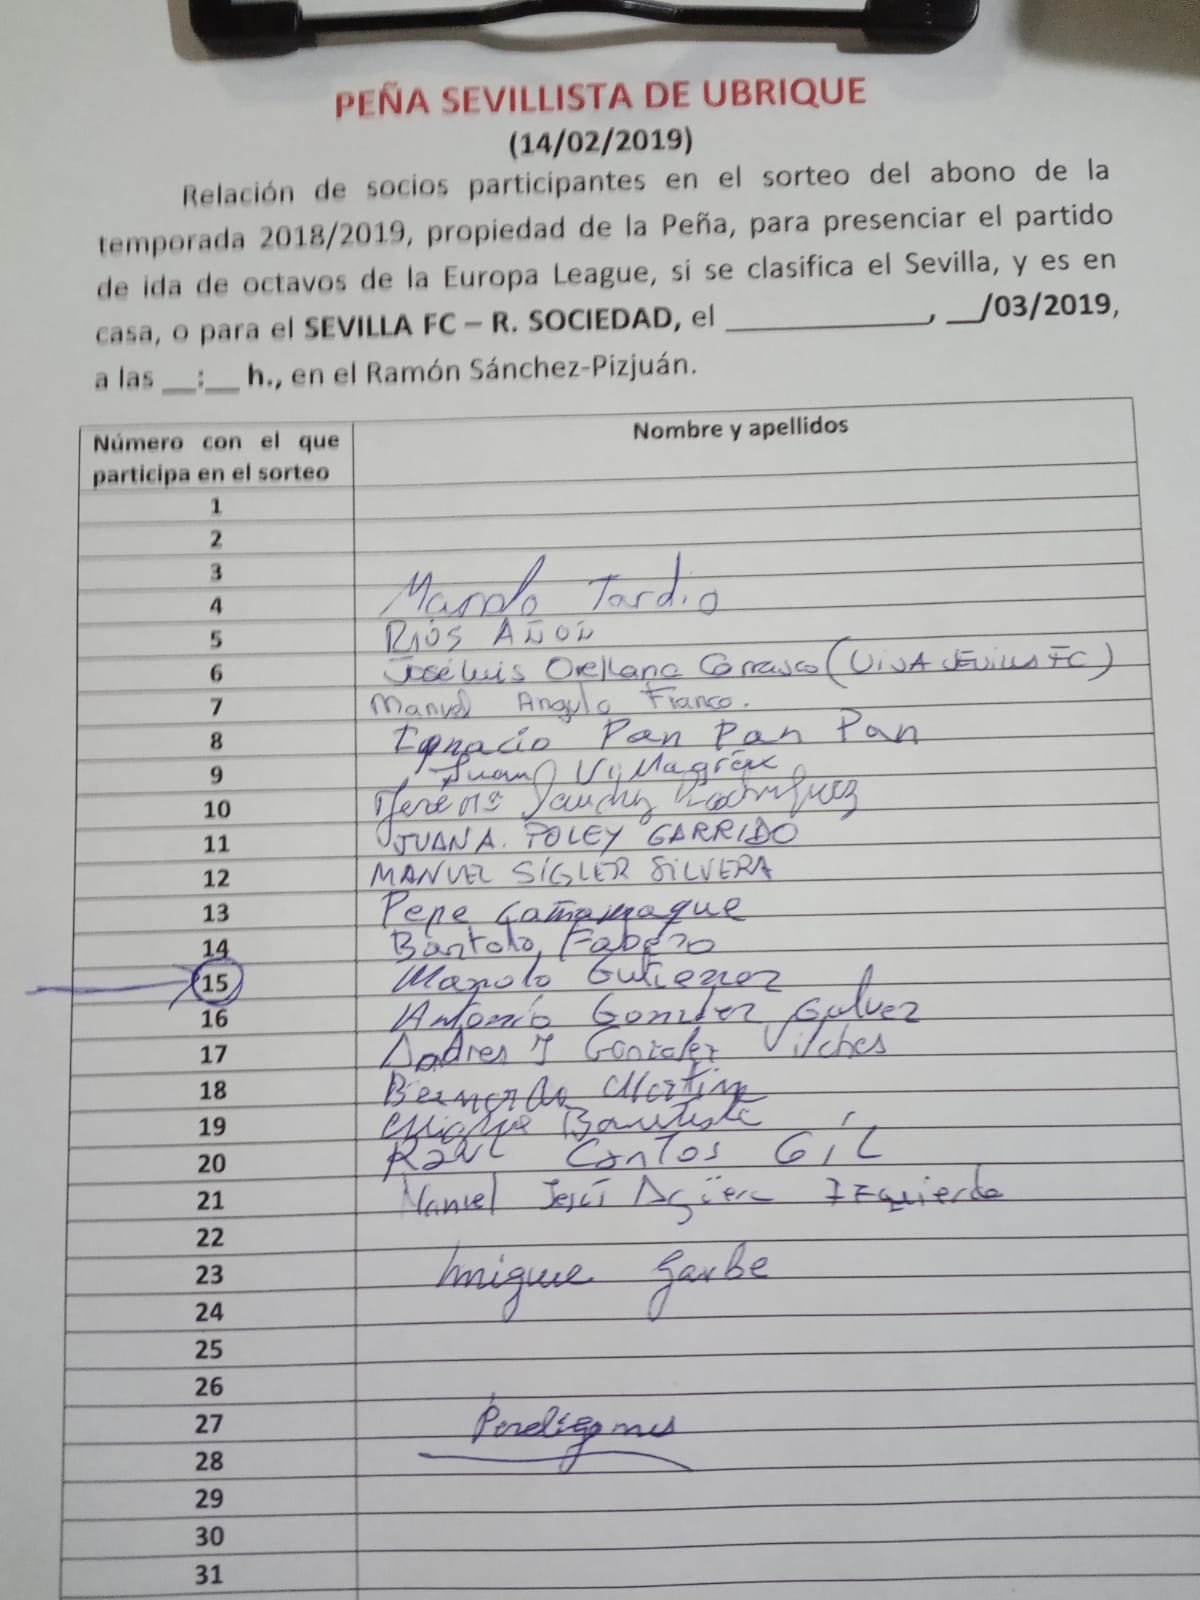 PEÑA SEVILLISTA DE UBRIQUE
(14/02/2019)
Relación de socios participantes en el sorteo del abono de la
temporada 2018/2019, propiedad de la Peña, para presenciar el partido
de ida de octavos de la Europa League, si se clasifica el Sevilla, y es en
casa, o para el SEVILLA FC – R. SOCIEDAD, el ____________, __/03/2019,
a las __:__ h., en el Ramón Sánchez-Pizjuán.
Número con el que Nombre y apellidos
participa en el sorteo
1
2
3
4 Manolo Tardio
5 RIOS AÑON
6 José Luis Orellana Carrasco (VIVA SEVILLA FC)
7 Manuel Angulo Franco.
8 Ignacio Pan Pan Pan
9 Juan Villagrán
10 Sanchez Rodriguez
11 JUAN A. POLEY GARRIDO
12 MANUEL SIGLER SILVERA
13 Pepe
14 Bartolo Fabero
15 Manolo Gutierrez
16 Antonio Gonzalez Galvez
17 Andres J Gonzalez Vilches
18 Bernardo Martin
19 Bautista
20 Raul Cantos Gil
21 Manuel Jesús Agüera Izquierdo
22
23 Garbe
24
25
26
27
28
29
30
31